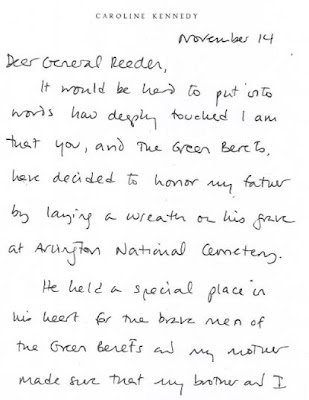 CAROLINE KENNEDY
November 14
Dear General Reeder,
It would be hard to put into
words how deeply touched I am
that you, and The Green Berets,
have decided to honor my father
by laying a wreath on his grave
at Arlington National Cemetery.
He held a special place in
his heart for the brave men of
the Green Berets and my mother
made sure that my brother and I